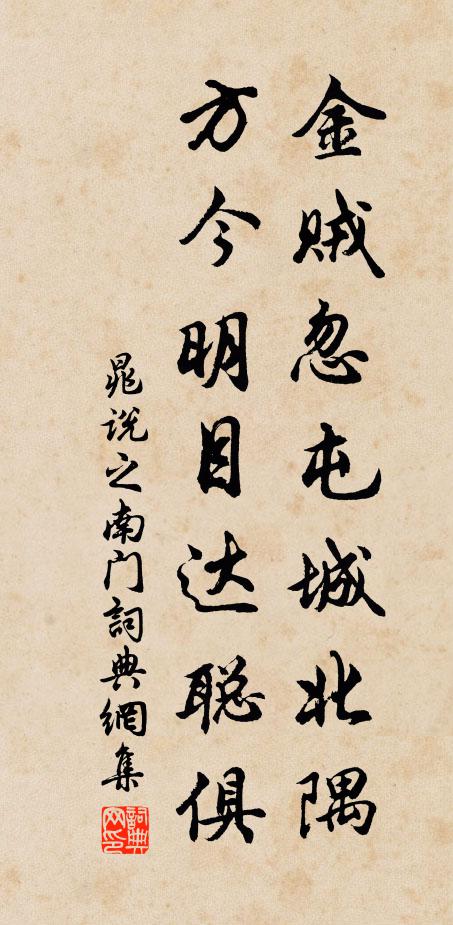 金贼忽屯城北隅
方今明目达聪俱
晁说之南门詞典網集
詞典網印